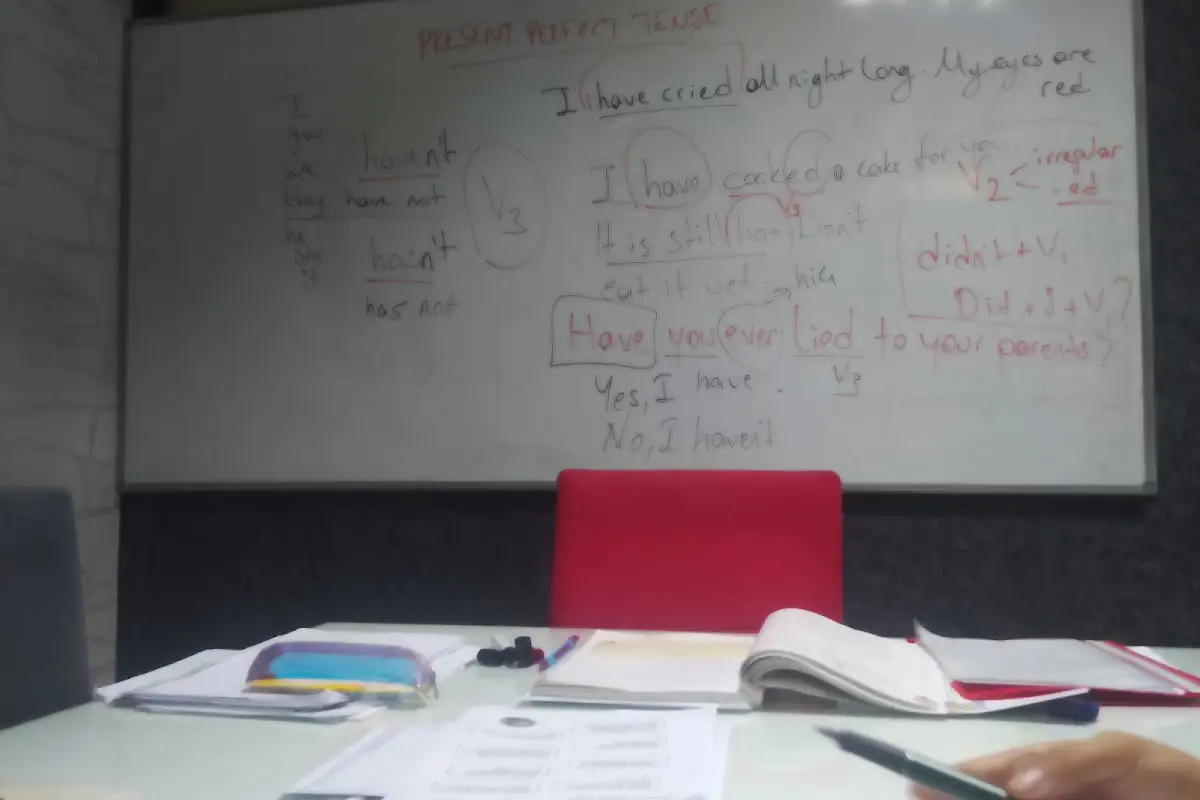 PRESENT PERFECT TENSE
I have cried all night long. My eyes are
red
I
you
we
they have not
haven't
he
she
it
hasn't
has not
V3
I have cooked a cake for you
V3
It is still hot. Don't
eat it yet. hiç
Have you ever lied to your parents?
V3
Yes, I have.
No, I haven't
V2 < irregular
-ed
didn't + V1
Did + S + V1?